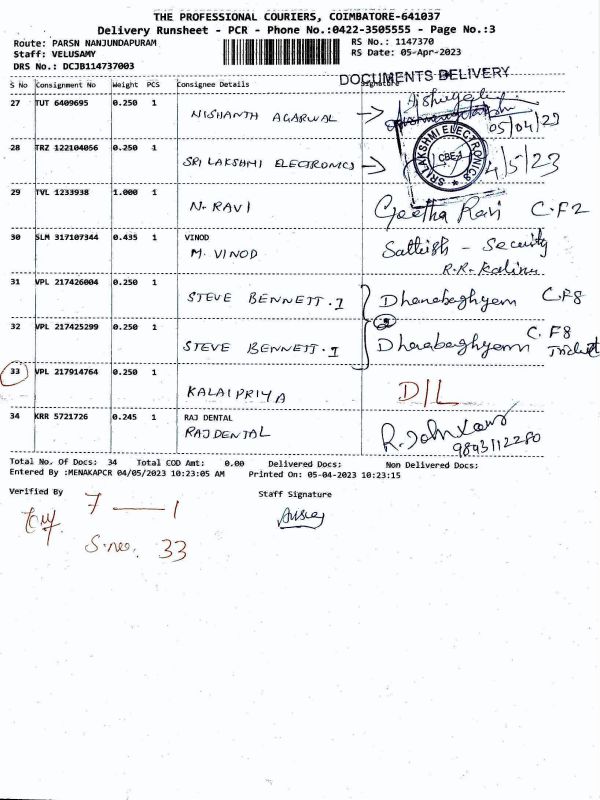 THE PROFESSIONAL COURIERS, COIMBATORE-641037
Delivery Runsheet - PCR - Phone No.:0422-3505555 - Page No.:3
Route: PARSN NANJUNDAPURAM RS No.: 1147370
Staff: VELUSAMY RS Date: 05-Apr-2023
DRS No.: DCJB114737003
DOCUMENTS DELIVERY
S No Consignment No Weight PCS Consignee Details Signature
27 TUT 6409695 0.250 1
NISHANTH AGARWAL
05/04/23
28 TRZ 122104056 0.250 1
SRI LAKSHMI ELECTRONICS
SRI LAKSHMI ELECTRONICS
CBE-1
4/5/23
29 TVL 1233938 1.000 1
N. RAVI Geetha Ravi C.F2
30 SLM 317107344 0.435 1 VINOD
M. VINOD Sathish - Security
R.R.
31 VPL 217426004 0.250 1
STEVE BENNETT. I Dhanabaghyam C.F8
2
32 VPL 217425299 0.250 1
STEVE BENNETT. I Dhanabaghyam C.F8
33 VPL 217914764 0.250 1
KALAIPRIYA D/L
34 KRR 5721726 0.245 1 RAJ DENTAL
RAJ DENTAL
9893112280
Total No. Of Docs: 34 Total COD Amt: 0.00 Delivered Docs: Non Delivered Docs:
Entered By :MENAKAPCR 04/05/2023 10:23:05 AM Printed On: 05-04-2023 10:23:15
Verified By Staff Signature
7 — 1
S.no. 33